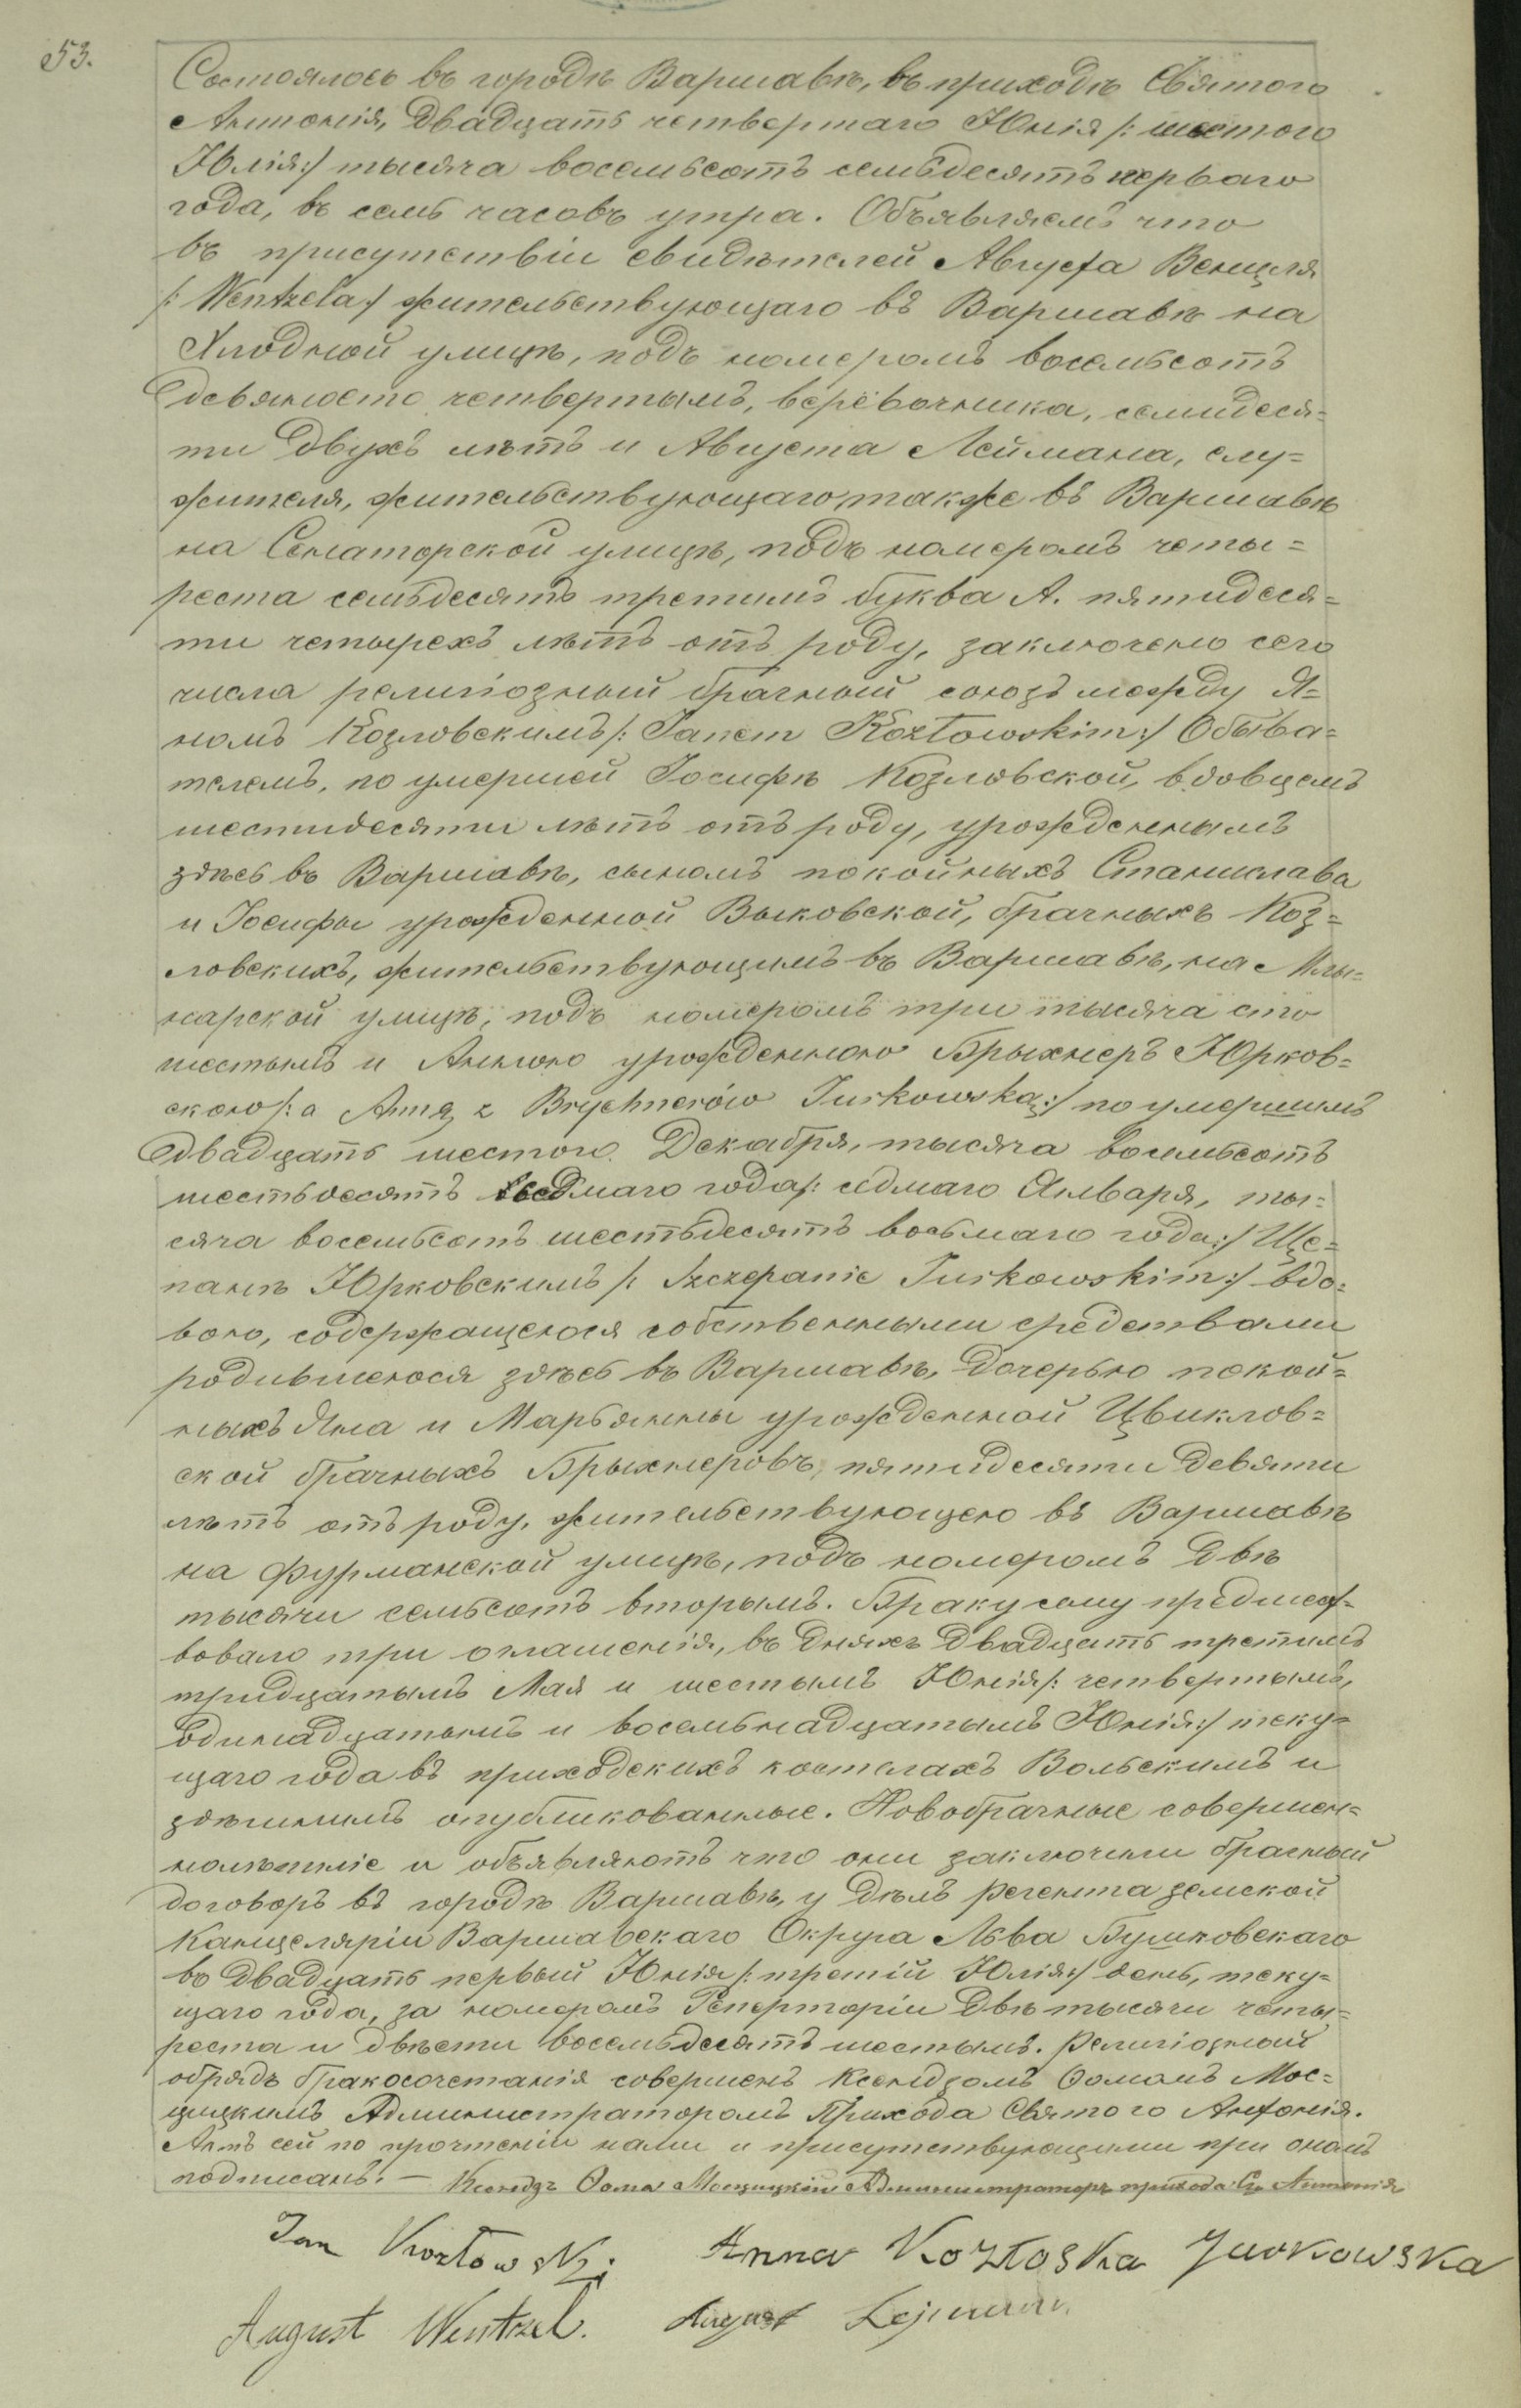 53.
Состоялось въ городѣ Варшавѣ, въ приходѣ Святого
Антонія, двадцать четвертаго Юнія /: шестого
Юлія:/ тысяча восемьсотъ семьдесятъ перваго
года, въ семь часовъ утра. Объявляемъ что
въ присутствіи свидѣтелей Августа Венцеля
/: Wentzela:/ жительствующаго въ Варшавѣ на
Хлодной улицѣ, подъ номеромъ восемьсотъ
девяносто четвертымъ, верёвочника, семидеся=
ти двухъ лѣтъ и Августа Леймана, слу=
жителя, жительствующаго также въ Варшавѣ
на Сенаторской улицѣ, подъ номеромъ четы=
реста семьдесятъ третимъ буква А. пятидеся=
ти четырехъ лѣтъ отъ роду, заключено сего
числа религіозный брачный союзъ между Я=
номъ Козловскимъ /: Janem Kozłowskim:/ Обыва=
телемъ, по умершей Іосифѣ Козловской, вдовцемъ
шестидесяти лѣтъ отъ роду, урожденнымъ
здѣсь въ Варшавѣ, сыномъ покойныхъ Станислава
и Іосифы урожденной Выковской, брачныхъ Коз=
ловскихъ, жительствующимъ въ Варшавѣ, на Млы=
нарской улицѣ, подъ номеромъ три тысяча сто
шестымъ и Анною урожденною Брыхнеръ Юрков=
скою /: a Anną z Brychnerów Jurkowską:/ по умершимъ
двадцать шестого Декабря, тысяча восемьсотъ
шестьдесятъ седмаго года /: седмаго Января, ты=
сяча восемьсотъ шестьдесятъ восьмаго года:/ Ще=
панѣ Юрковскимъ /: Szczepanie Jurkowskim:/ вдо=
вою, содержащеюся собственными средствами
родившеюся здѣсь въ Варшавѣ, дочерью покой=
ныхъ Яна и Марьянны урожденной Цвиклов=
ской брачныхъ Брыхнеровъ, пятидесяти девяти
лѣтъ отъ роду, жительствующею въ Варшавѣ
на Фурманской улицѣ, подъ номеромъ двѣ
тысячи семьсотъ вторымъ. Браку сему предшест=
вовало три оглашенія, въ дняхъ двадцать третимъ
тридцатымъ Мая и шестымъ Юнія /: четвертымъ,
одинадцатымъ и восемьнадцатымъ Юнія:/ теку=
щаго года въ приходскихъ костелахъ Вольскимъ и
здѣшнимъ опубликованные. Новобрачные совершен=
нолѣтніе и объявляютъ что они заключили брачный
договоръ въ городѣ Варшавѣ, у дѣлъ Регента земской
Канцеляріи Варшавскаго Округа Льва Бушковскаго
въ двадцать первый Юнія /: третій Юлія:/ день, теку=
щаго года, за номеромъ Реперторіи двѣ тысячи четы=
реста и двѣсти восемьдесятъ шестымъ. Религіозный
обрядъ бракосочетанія совершенъ Ксендзомъ Ѳомомъ Мос=
цицкимъ Администраторомъ Прихода Святого Антонія.
Актъ сей по прочтеніи нами и присутствующими при ономъ
подписанъ. — Ксендзъ Ѳома Мосцицкій Администраторъ прихода Св. Антонія
Jan Kozłowski Anna Kozłoska Jurkowska
August Wentzel. August Lejman